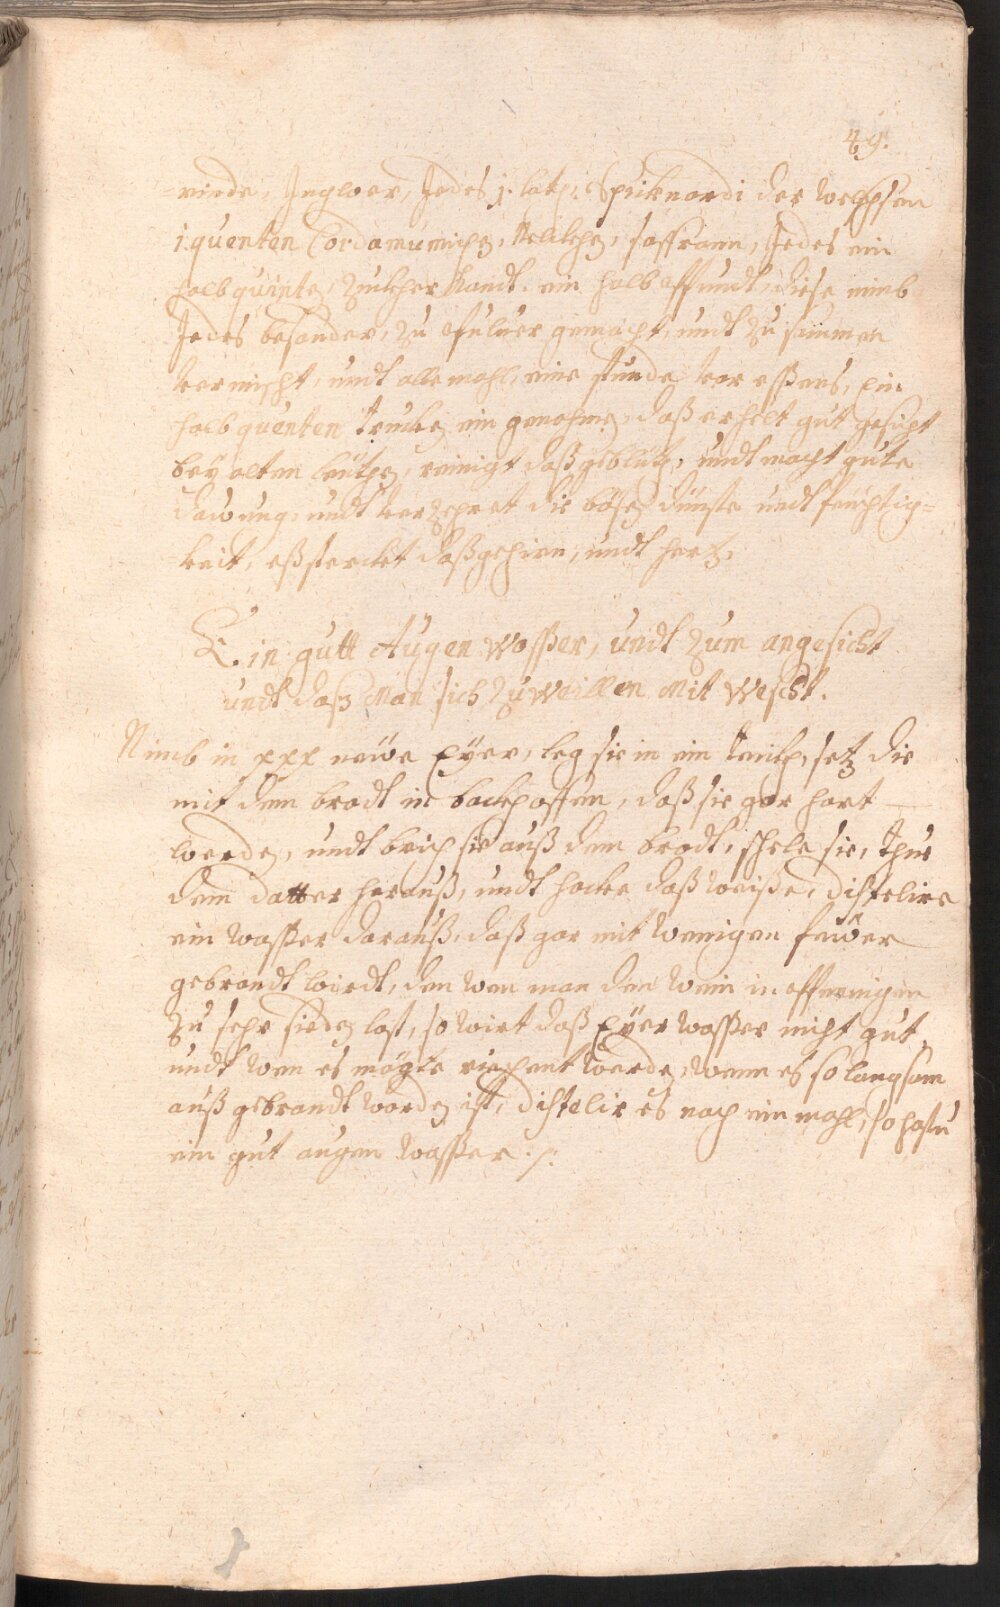 49.
rinde, Ingwer, Jedes 1. loth, Spicknardi der welschen
1 quenten Cordamumichen, Nelcken, saffrann, Jedes ein
halb quinten, Zucker Kandt. ein halb pfundt, diese nimb
Jedes besonder, zu pfulver gemacht, undt zu sammen
vermischt, undt alle mahl, eine stunde vor eßens, ein
halb quenten trucken ein genohmen, daß erhelt gut gesicht
bey alten leüthen, reinigt daß geblüth, undt macht gute
dawung, undt verzehret die bösen dünste undt feuchtig=
keit, eß stercket daß gehirn, undt hertz.
Ein gutt Augen Waßer, undt zum angesicht
undt daß Man sich zu Weillen Mit Wescht.
Nimb in xxx newe Eyer, leg sie in ein teich, setz die
mit dem brodt in backhoffen, daß sie gar hart
werden, undt brich sie auß dem brodt, schele sie, thue
dem datter herauß, undt hacke daß weiße, distelire
ein waßer darauß, daß gar mit wenigen fewer
gebrandt wirdt, den wen man den wein in
zu sehr sieden last, so wirt daß Eyer waßer nicht gut,
undt wen es mögte riechent werden, wenn es so langsam
auß gebrandt worden ist, distelir es noch ein mahl, so hastu
ein gut augen waßer ./.